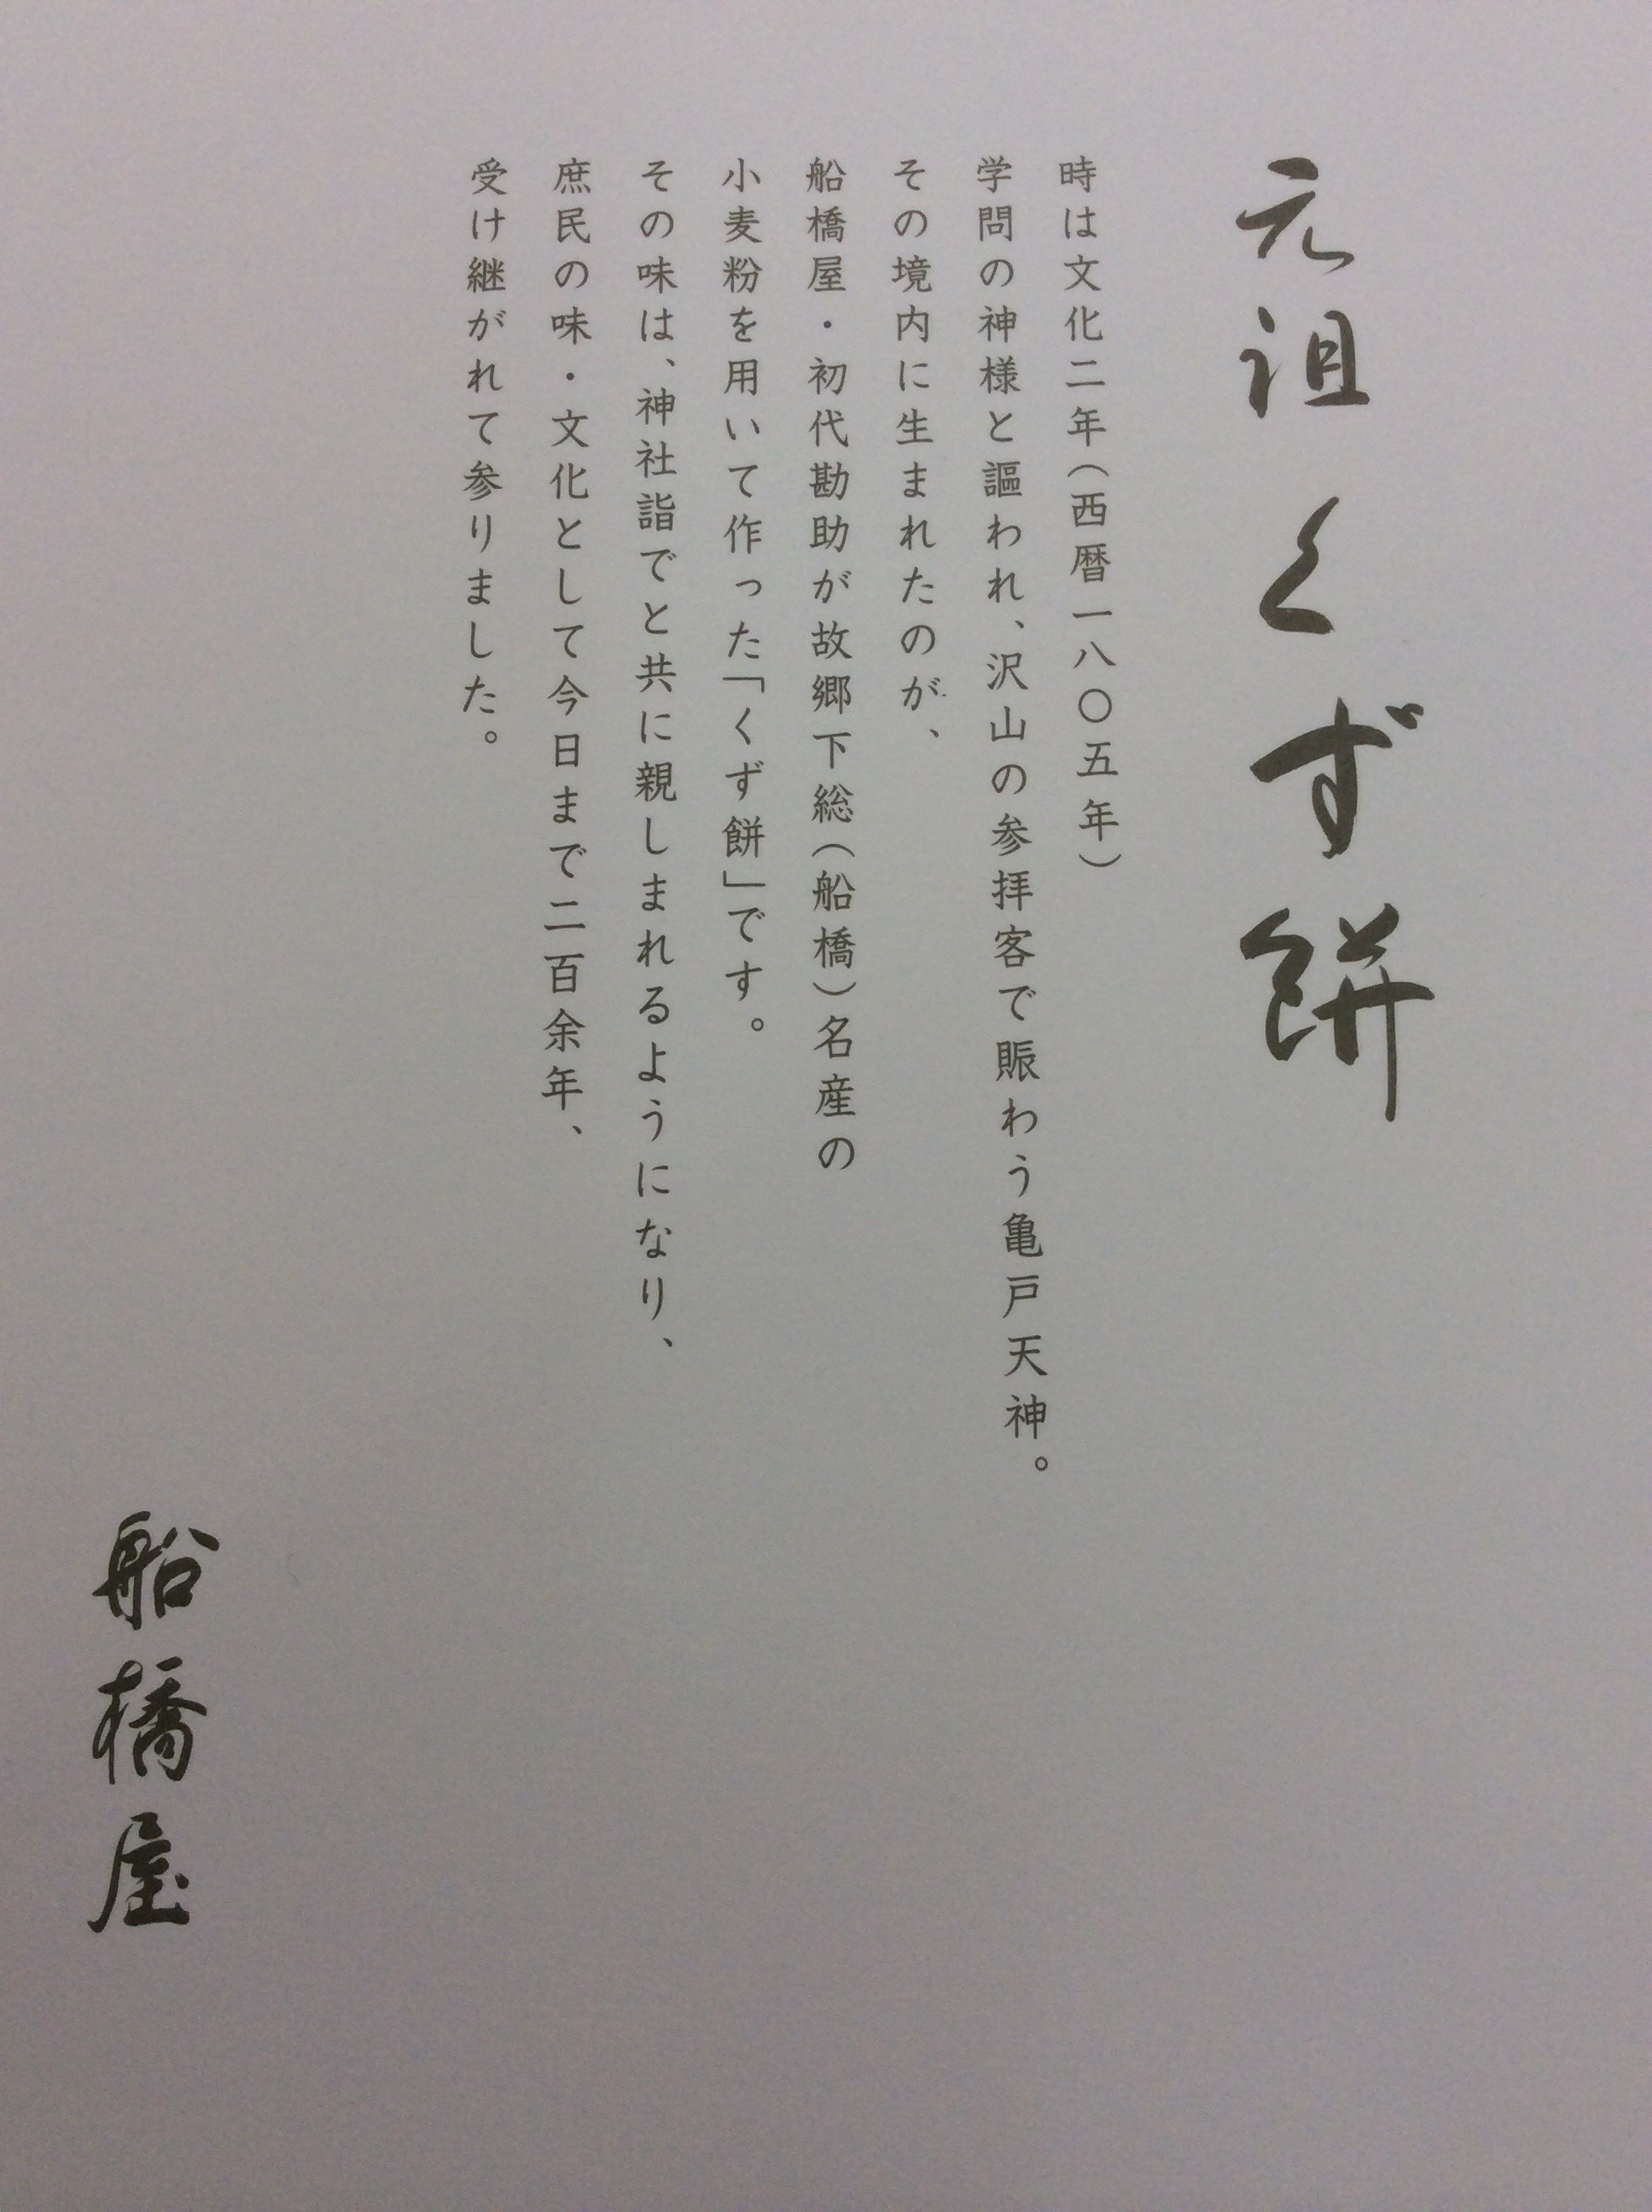 元祖くず餅
時は文化二年（西暦一八〇五年）
学問の神様と謳われ、沢山の参拝客で賑わう亀戸天神。
その境内に生まれたのが、
船橋屋・初代勘助が故郷下総（船橋）名産の
小麦粉を用いて作った「くず餅」です。
その味は、神社詣でと共に親しまれるようになり、
庶民の味・文化として今日まで二百余年、
受け継がれて参りました。
船橋屋